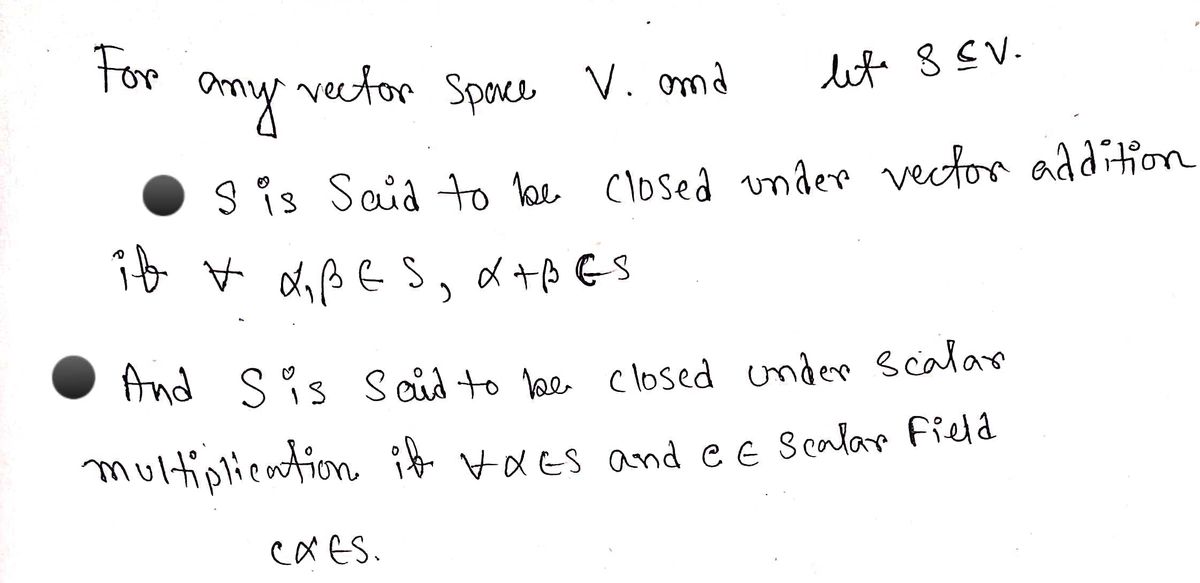 For any vector space V. and let S ⊆ V.
● S is Said to be closed under vector addition
if ∀ α, β ∈ S, α + β ∈ S
● And S is Said to be closed under scalar
multiplication if ∀ α ∈ S and c ∈ Scalar Field
cα ∈ S.